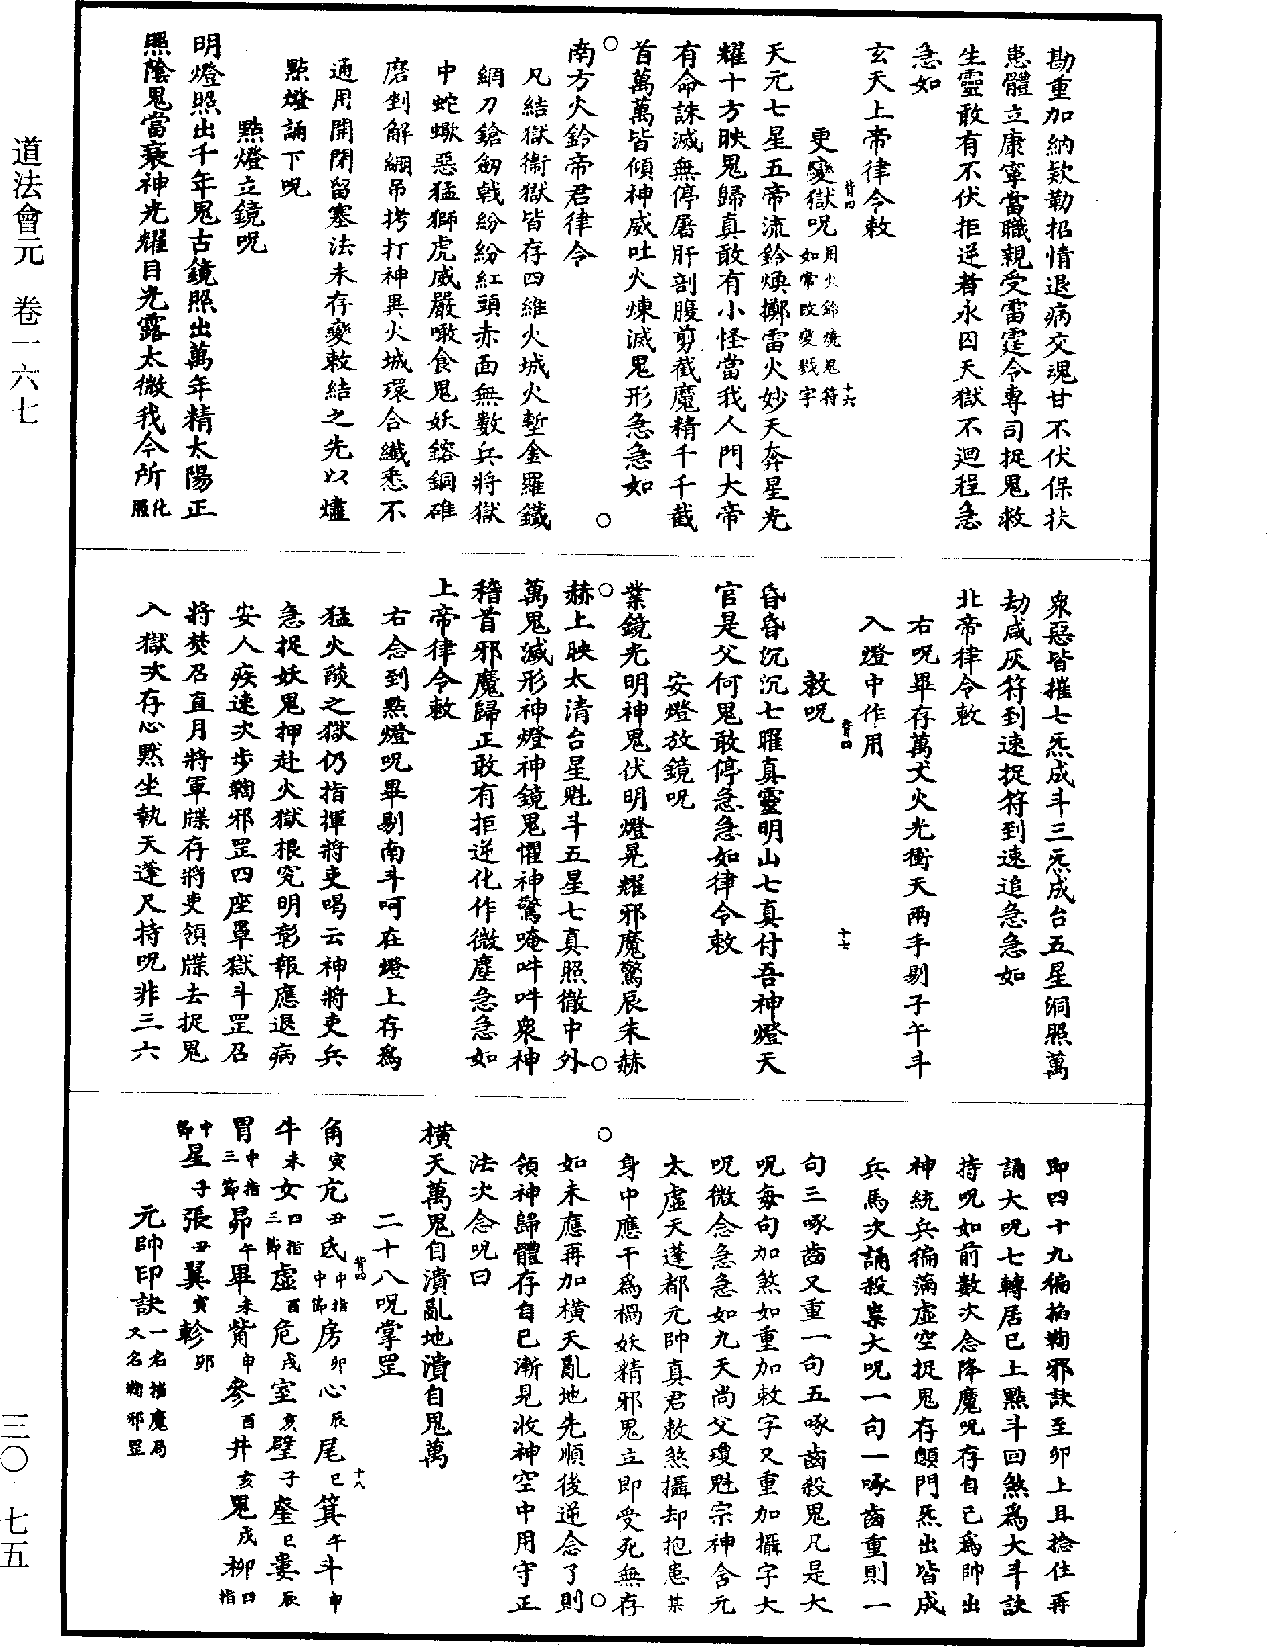 道法會元　卷一六七
三〇　七五
勘重加納欵勒招情退病交魂甘不伏保扶
患體立康寧當職親受雷霆令專司捉鬼救
生靈敢有不伏拒逆者永囚天獄不迴程急
急如
玄天上帝律令敕
更變獄呪用火鈴燒鬼符如常改變獄字
十六
天元七星五帝流鈴煥擲雷火妙天奔星光
耀十方映鬼歸真敢有小怪當我人門大帝
有命誅滅無停屠肝剖腹剪截魔精千千截
首萬萬皆傾神威吐火煉滅鬼形急急如
南方火鈴帝君律令
凡結獄衛獄皆存四維火城火塹金羅鐵
網刀鎗劒戟紛紛紅頭赤面無數兵將獄
中蛇蠍惡猛獅虎威嚴噉食鬼妖鎔銅碓
磨剉解綳吊拷打神異火城環合纖悉不
通用開閉留塞法未存變敕結之先以燼
點燈誦下呪
點燈立鏡呪
明燈照出千年鬼古鏡照出萬年精太陽正
照陰鬼當衰神光耀目光露太微我今所化服
衆惡皆摧七炁成斗三炁成台五星洞照萬
劫咸灰符到速捉符到速追急急如
北帝律令敕
右呪畢存萬丈火光衝天兩手剔子午斗
入燈中作用
敕呪
十七
昏昏沉沉七曜真靈明山七真付吾神燈天
官是父何鬼敢停急急如律令敕
安燈放鏡呪
業鏡光明神鬼伏明燈晃耀邪魔驚辰朱赫
赫上映太清台星魁斗五星七真照徹中外
萬鬼滅形神燈神鏡鬼懼神驚唵吽吽衆神
稽首邪魔歸正敢有拒逆化作微塵急急如
上帝律令敕
右念到點燈呪畢剔南斗呵在燈上存爲
猛火燄之獄仍指揮將吏喝云神將吏兵
急捉妖鬼押赴火獄根究明彰報應退病
安人疾速次步鞫邪罡四座罩獄斗罡召
將焚召直月將軍牒存將吏領牒去捉鬼
入獄次存心黙坐執天蓬尺持呪非三六
即四十九徧掐鞫邪訣至卯上且捻住再
誦大呪七轉居巳上點斗回煞爲大斗訣
持呪如前數次念降魔呪存自己爲帥出
神統兵徧滿虛空捉鬼存顖門炁出皆成
兵馬次誦殺祟大呪一句一啄齒重則一
句三啄齒又重一句五啄齒殺鬼凡是大
呪每句加煞如重加敕字又重加攝字大
呪微念急急如九天尚父瓊魁宗神含元
太虛天蓬都元帥真君敕煞攝却抱患某
身中應干爲禍妖精邪鬼立即受死無存
如未應再加橫天亂地先順後逆念了則
領神歸體存自已漸見收神空中用守正
法次念呪曰
橫天萬鬼自潰亂地潰自鬼萬
二十八呪掌罡
十八
角寅亢丑氐中指中節房卯心辰尾巳箕午斗申
牛未女四指三節虛酉危戌室亥壁子奎巳婁辰
胃中指三節昴午畢未觜申參酉井亥鬼戌柳四指
中節星子張丑翼寅軫卯
元帥印訣一名攝魔局又名鞫邪罡